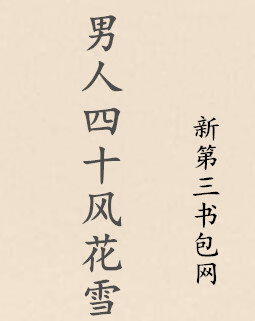 男人四十风花雪
新第三书包网